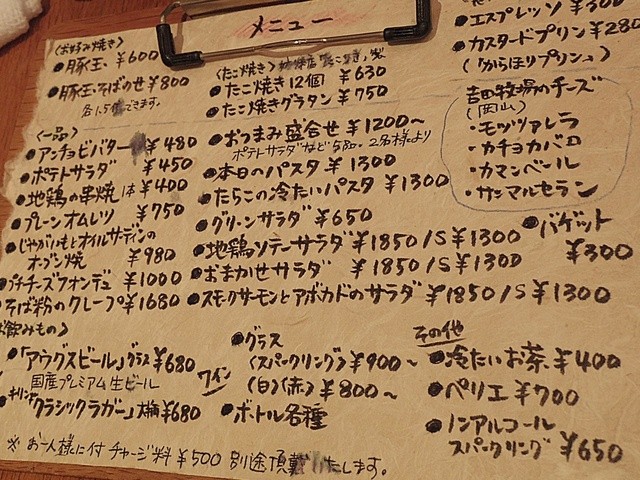 メニュー
〈お好み焼き〉
●豚玉 ¥600
●豚玉そばのせ ¥800
〈一品〉
●アンチョビバター ¥480
●ポテトサラダ ¥450
●地鶏の串焼 1本 ¥400
●プレーンオムレツ ¥750
●じゃがいもとオイルサーデインの
オーブン焼 ¥980
プチチーズフォンデュ ¥1000
そば粉のクレープ ¥1680
お飲みもの〉
●「アウグスビール」グラス ¥680
国産プレミアム生ビール
キリン「クラシックラガー」大瓶 ¥680
※お一人様に付チャージ料 ¥500 別途頂戴いたします。
〈たこ焼き〉
●たこ焼き12個 ¥630
●たこ焼きグラタン ¥750
●おつまみ盛合せ ¥1200〜
ポテトサラダなど5品。2名様より
●本日のパスタ ¥1300
●たらこの冷たいパスタ ¥1300
●グリーンサラダ ¥650
●地鶏ソテーサラダ ¥1850/S¥1300
●おまかせサラダ ¥1850/S¥1300
●スモークサーモンとアボカドのサラダ ¥1850/S¥1300
ワイン
●グラス
〈スパークリング〉¥900〜
(白)(赤) ¥800〜
●ボトル各種
●エスプレッソ ¥300
●カスタードプリン ¥280
(「からほりプリン」)
吉田牧場のチーズ
(岡山)
・モッツァレラ
・カチョカバロ
・カマンベール
・サンマルセラン
●バゲット
¥300
その他
●冷たいお茶 ¥400
●ペリエ ¥700
●ノンアルコール
スパークリング ¥650